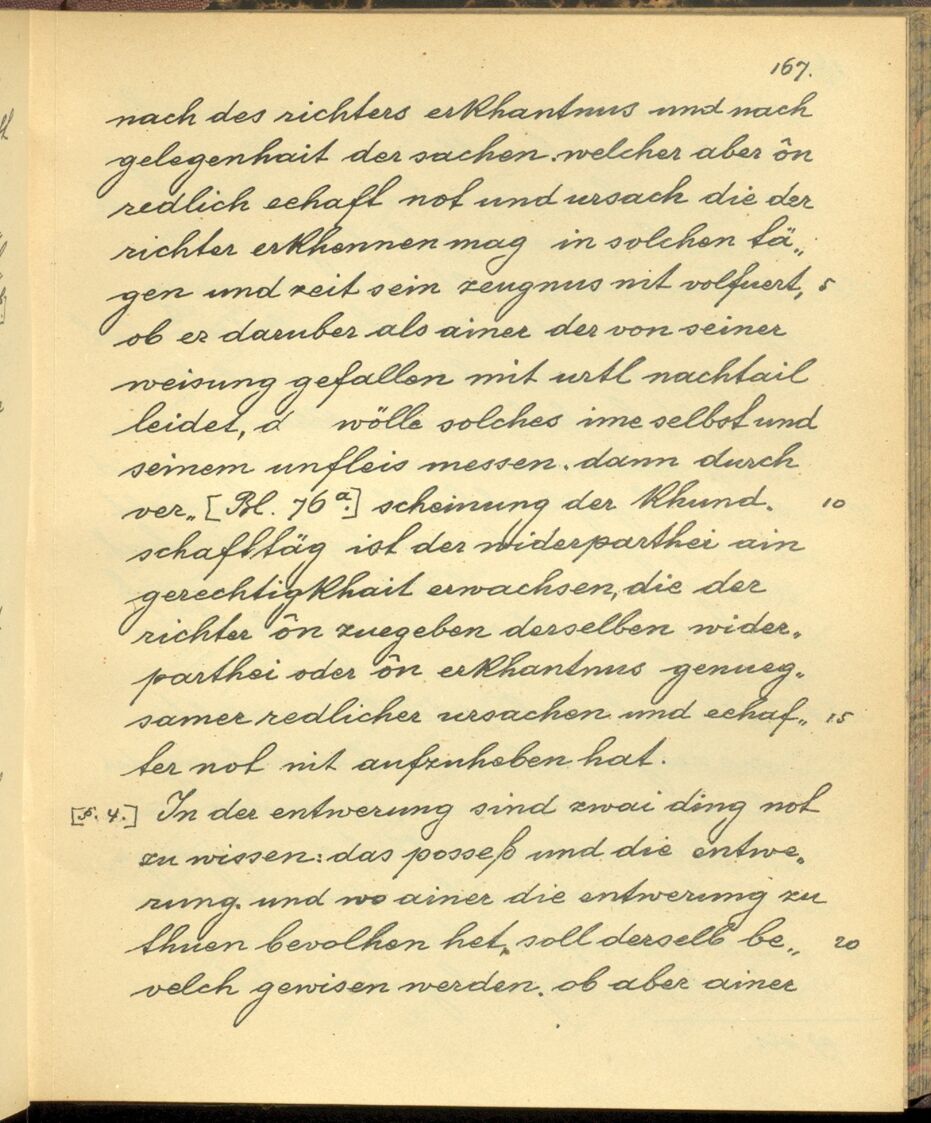 167.
nach des richters erkhantnus und nach
gelegenhait der sachen. welcher aber ôn
redlich eehaft not und ursach die der
richter erkhennen mag in solchen tä„
gen und zeit sein zeugnus nit volfuert, 5
ob er daruber als ainer der von seiner
weisung gefallen mit urtl nachtail
leidet, d wölle solches ime selbst und
seinem unfleis messen. dann durch
ver„ [Bl. 76 a.] scheinung der khund. 10
schafttäg ist der widerparthei ain
gerechtigkhait erwachsen, die der
richter ôn zuegeben derselben wider„
parthei oder ôn erkhantnus genueg„
samer redlicher ursachen und eehaf„ 15
ter not nit aufzuheben hat.
[§. 4.] In der entwerung sind zwai ding not
zu wissen: das posseß und die entwe„
rung. und wo ainer die entwerung zu
thuen bevolhen het, soll derselb be„ 20
velch gewisen werden. ob aber ainer